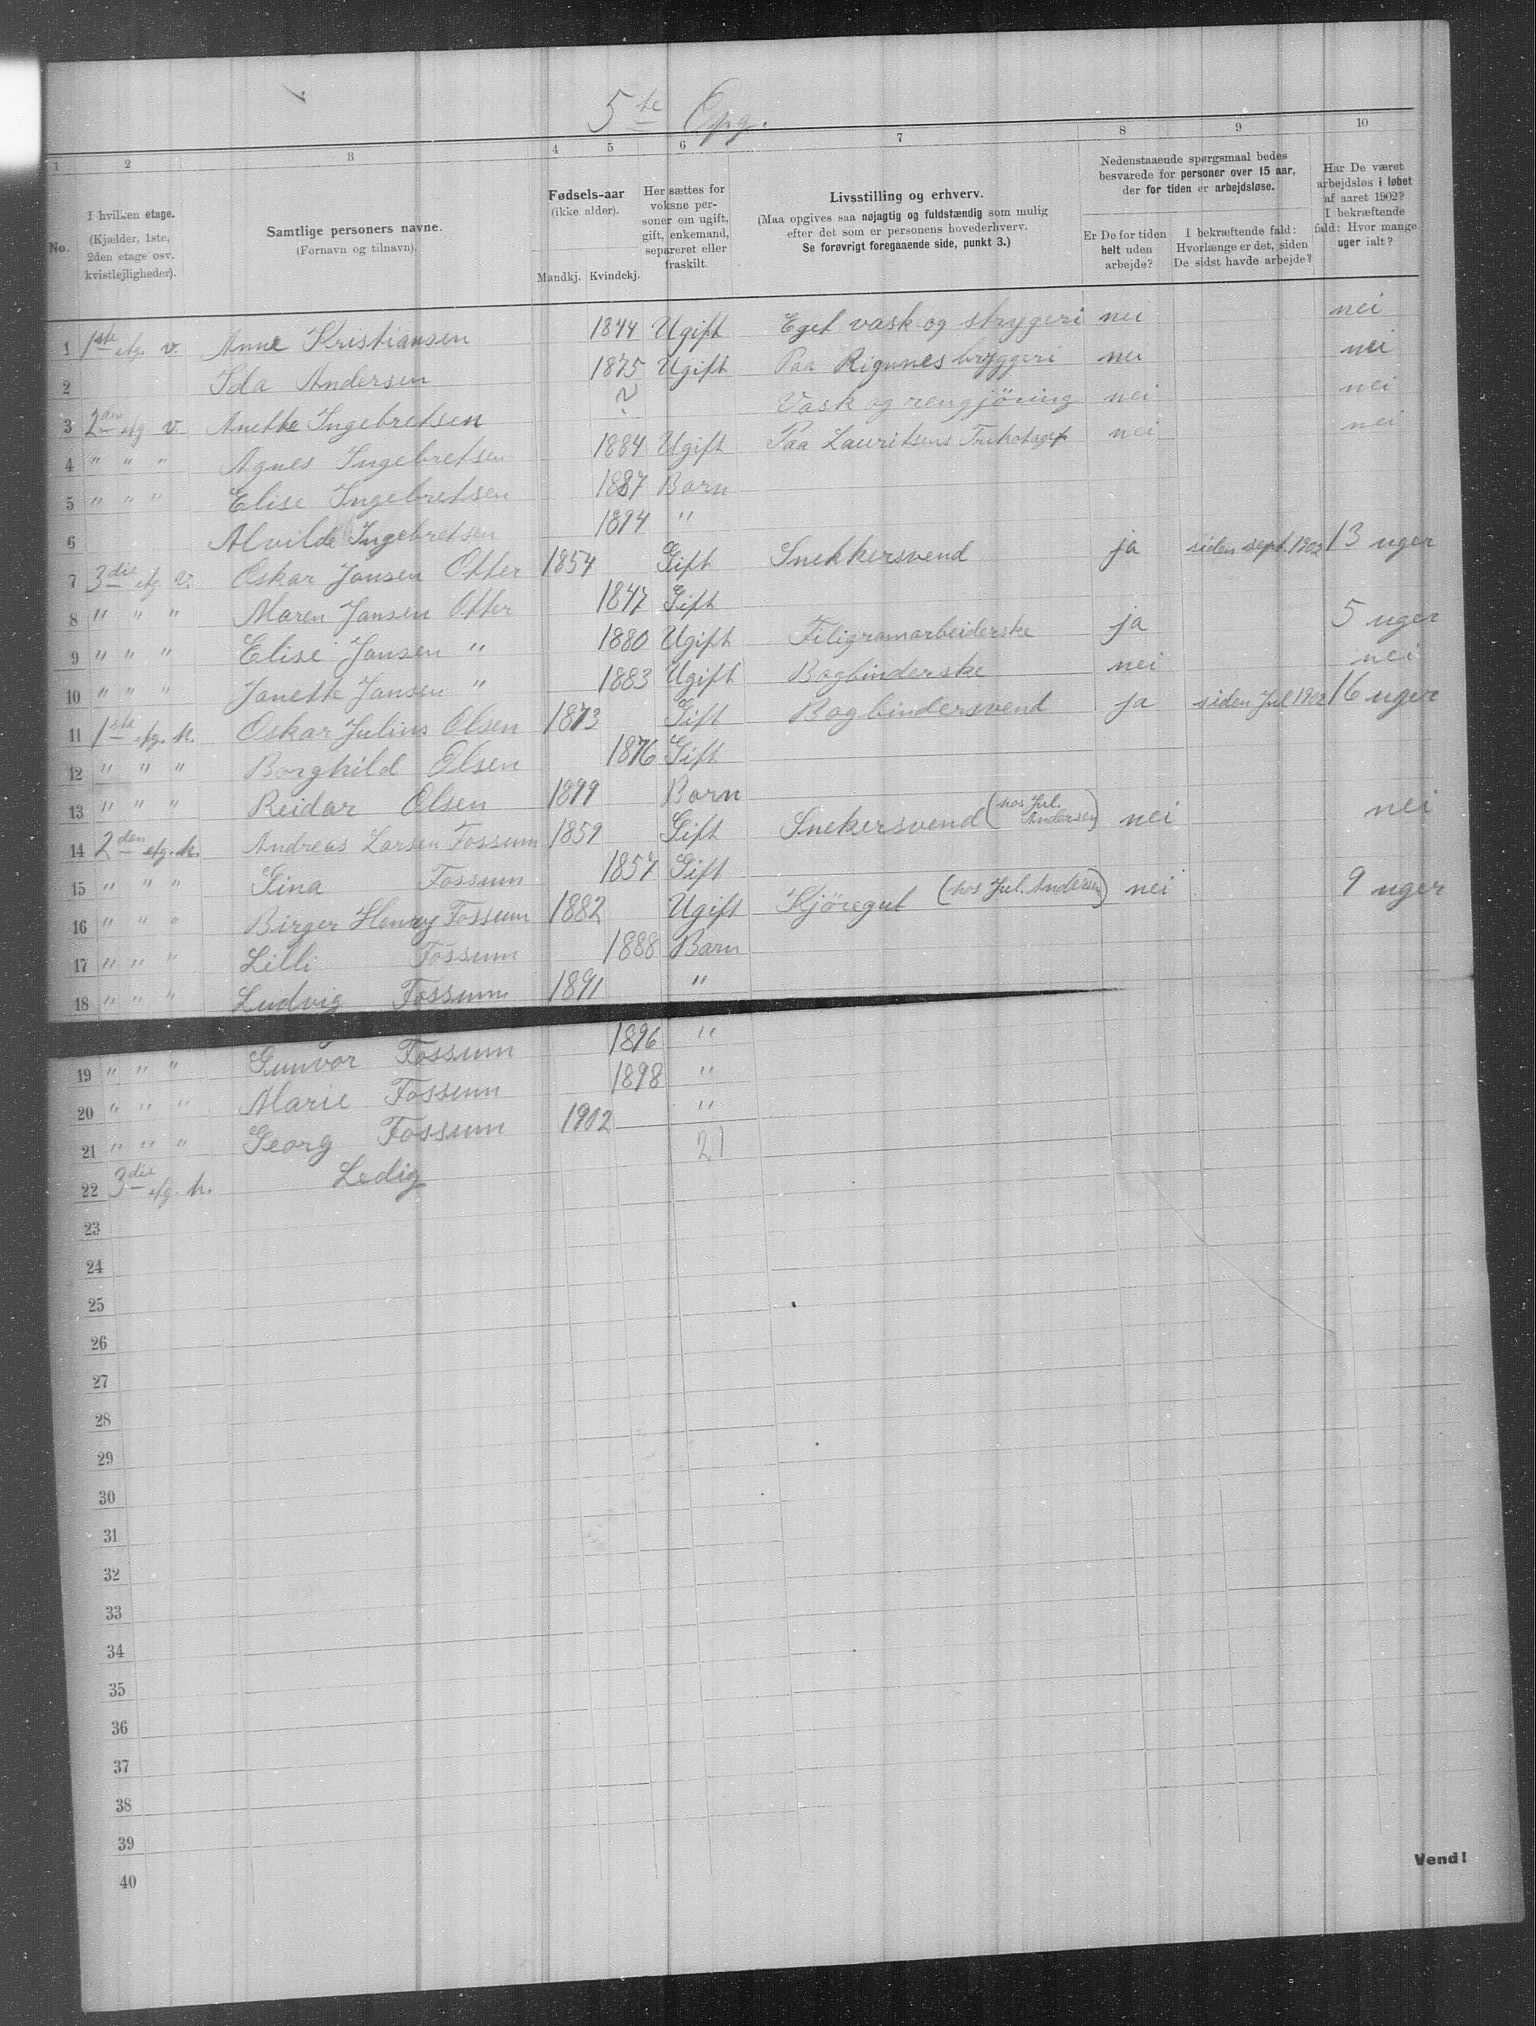 5te Opg.
1 2 3 4 5 6 7 8 9 10
No.
I hvilken etage.
(Kjælder, 1ste,
2den etage osv.
kvistlejligheder).
Samtlige personers navne.
(Fornavn og tilnavn).
Fødsels-aar
(ikke alder).
Mandkj. Kvindekj.
Her sættes for
voksne per-
soner om ugift,
gift, enkemand,
separeret eller
fraskilt.
Livsstilling og erhverv.
(Maa opgives saa nøjagtig og fuldstændig som mulig
efter det som er personens hovederhverv.
Se forøvrigt foregaaende side, punkt 3.)
Nedenstaaende spørgsmaal bedes
besvarede for personer over 15 aar,
der for tiden er arbejdsløse.
Er De for tiden
helt uden
arbejde?
I bekræftende fald:
Hvorlænge er det, siden
De sidst havde arbejde?
Har De været
arbejdsløs i løbet
af aaret 1902?
I bekræftende
fald: Hvor mange
uger ialt?
1 1ste etg. v. Anne Kristiansen 1844 Ugift Eget vask og strygeri nei nei
2 Ida Andersen 1875 Ugift Paa Rignnes bryggeri nei nei
3 2den etg v Anette Ingebretsen ? Vask og rengjöring nei nei
4 " " " Agnes Ingebretsen 1884 Ugift Paa Lauritsens Trikotage nei nei
5 " " " Elise Ingebretsen 1887 Barn
6 Alvilde Ingebretsen 1894 "
7 3die etg. v. Oskar Jansen Otter 1854 Gift Snekkersvend ja siden sept. 1902 13 uger
8 " " " Maren Jansen Otter 1847 Gift
9 " " " Elise Jansen " 1880 Ugift Filigramarbeiderske ja 5 uger
10 " " " Janette Jansen " 1883 Ugift Bogbinderske nei nei
11 1ste etg. h. Oskar Julius Olsen 1873 Gift Bogbindersvend ja siden Jul 1902 16 uger
12 " " " Borghild Olsen 1876 Gift
13 " " " Reidar Olsen 1899 Barn
14 2den etg. h. Andreas Larsen Fossum 1859 Gift Snekersvend (hos Jul. Andersen) nei nei
15 " " " Gina Fossum 1857 Gift
16 " " " Birger Henry Fossum 1882 Ugift Kjöregut (hos Jul. Andersen) nei 9 uger
17 " " " Lilli Fossum 1888 Barn
18 " " " Ludvig Fossum 1891 "
19 " " " Gunvor Fossum 1896 "
20 " " " Marie Fossum 1898 "
21 " " " Georg Fossum 1902 "
21
22 3die etg. h. Ledig
23
24
25
26
27
28
29
30
31
32
33
34
35
36
37
38
39
40
Vend!